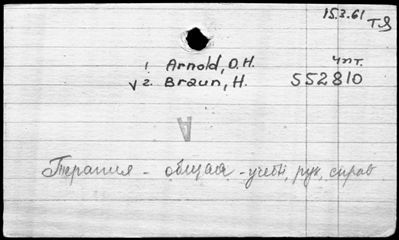 15.3.61
ТЯ
1. Arnold, O.H.
чит.
√ 2. Braun, H.
552810
А
Терапия - общая - учебн, рук, справ